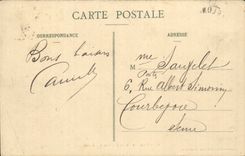 CARTE POSTALE
CORRESPONDANCE
ADRESSE
Bons baisers
Camille
M me
6, Rue Albert Simonin
Courbevoie
Seine